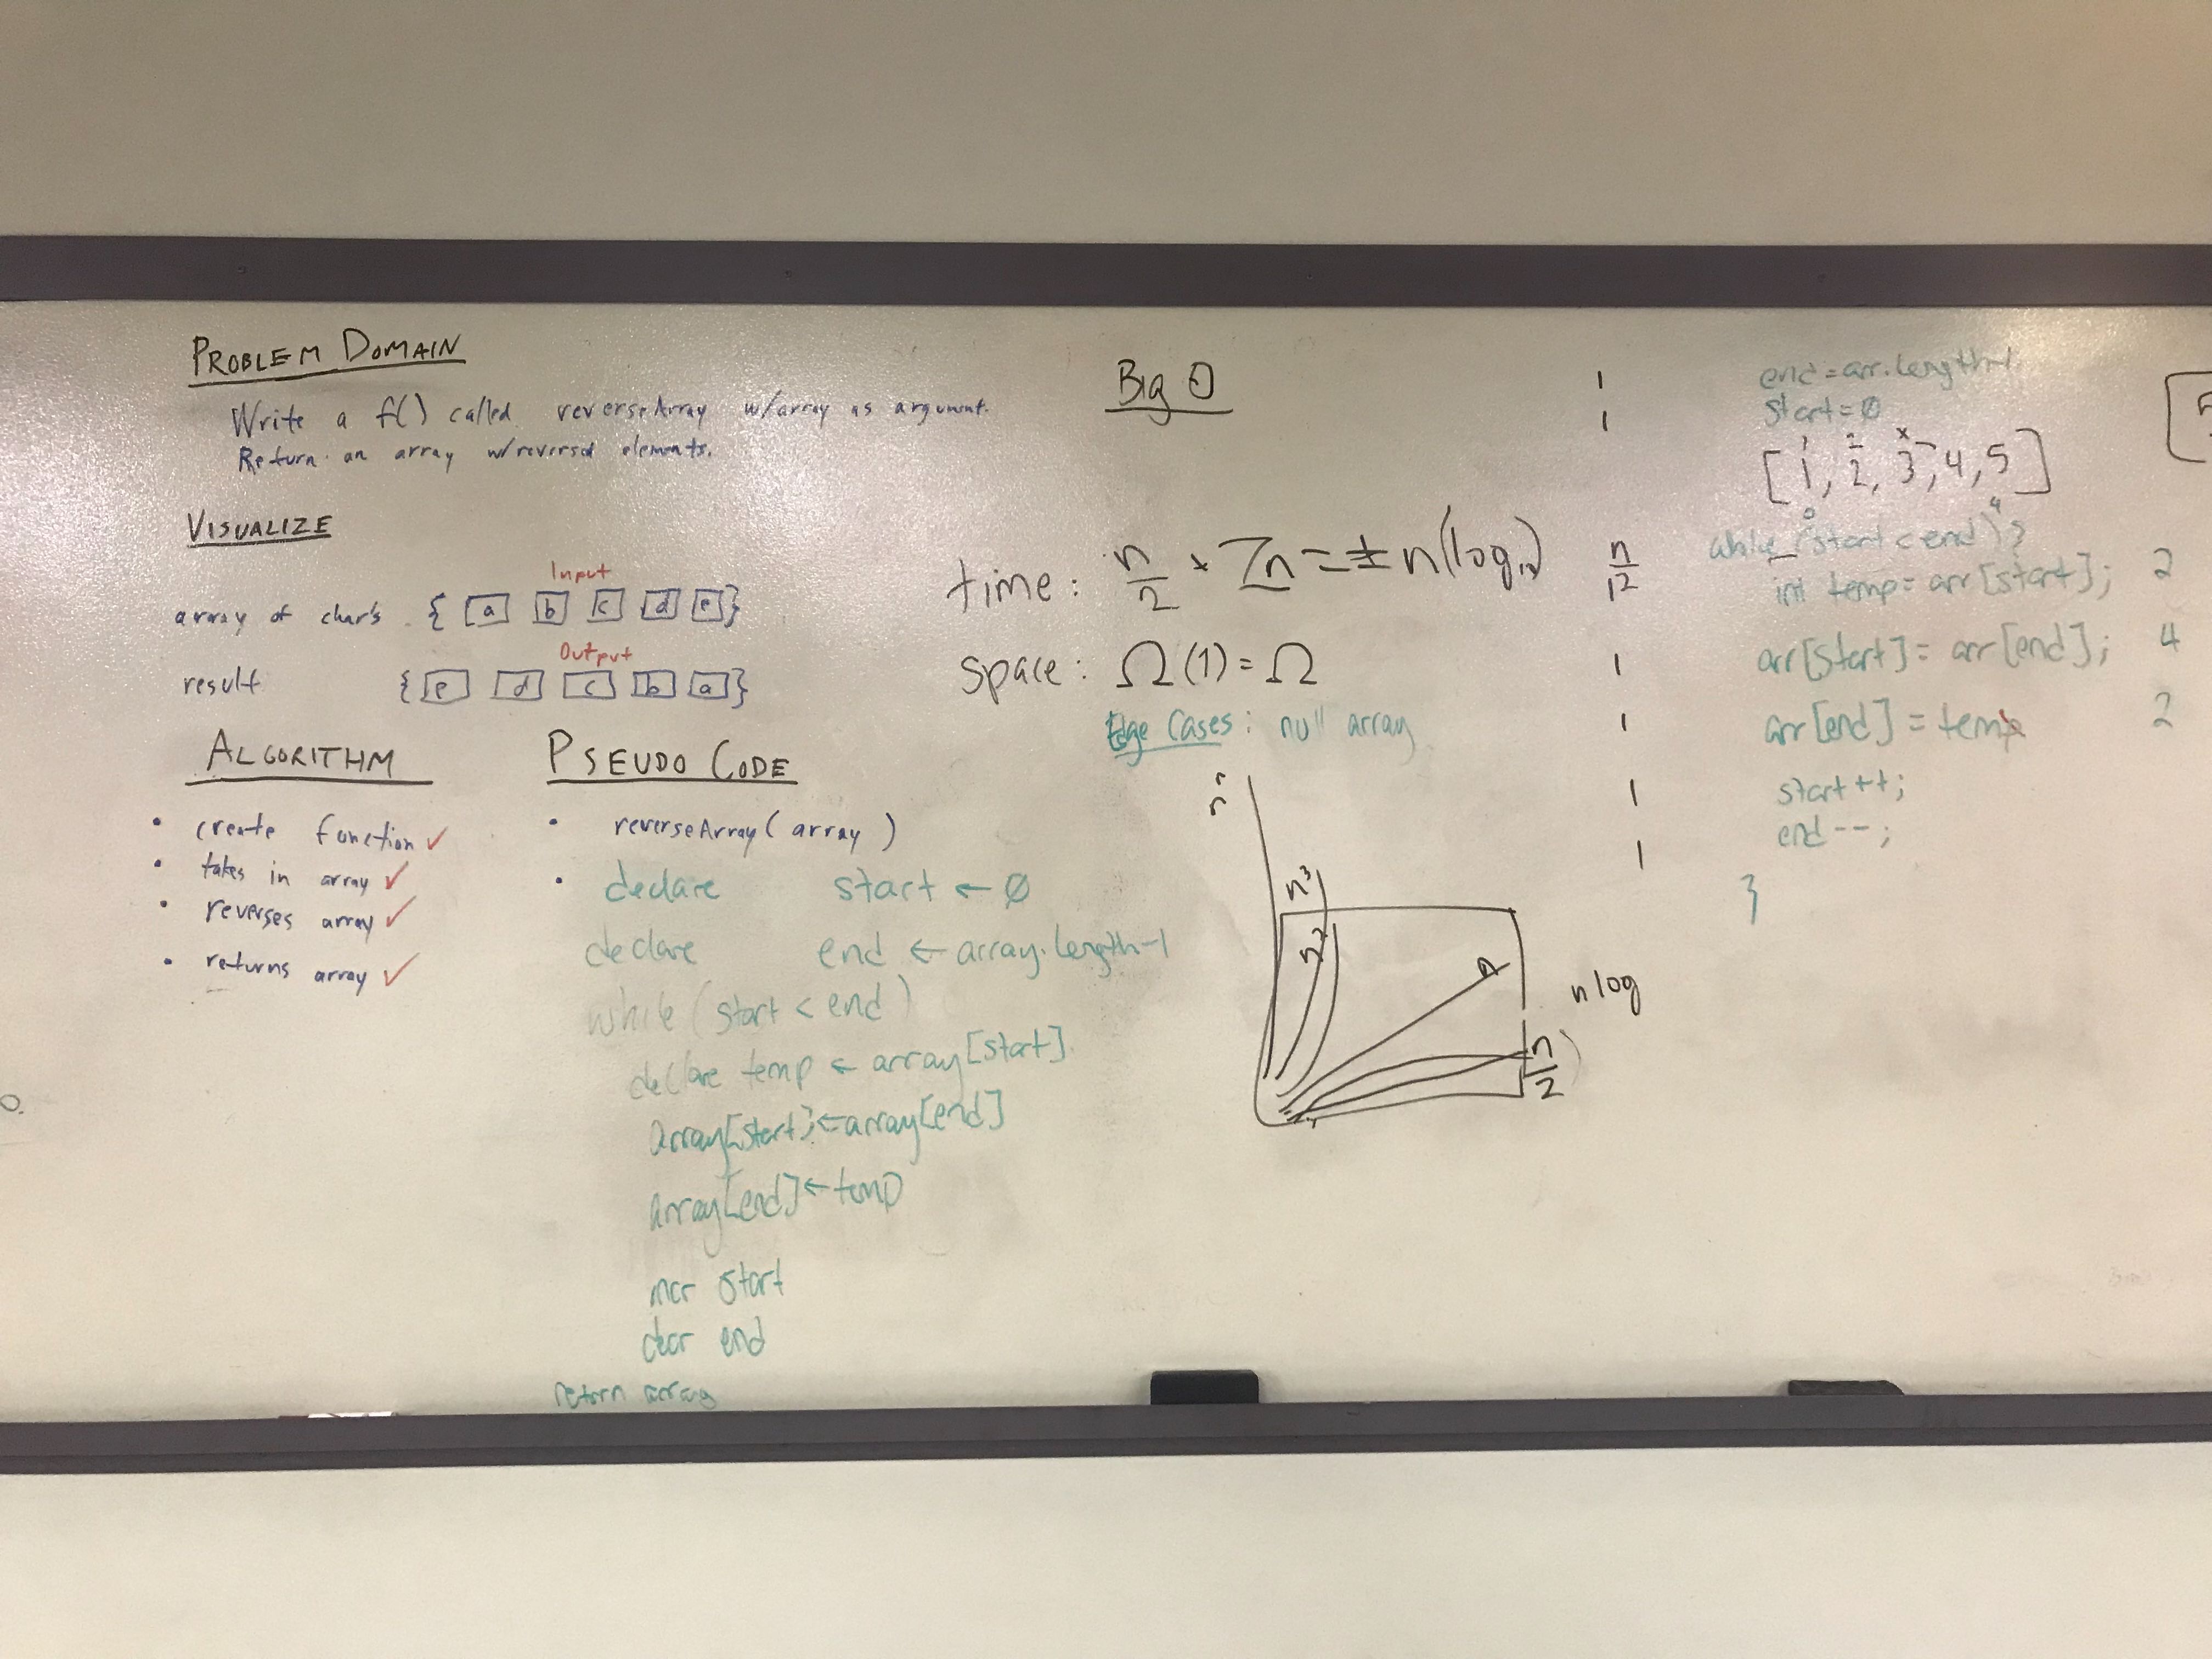 PROBLEM DOMAIN
Write a f() called reverseArray w/array as argument.
Return an array w/reversed elements.
VISUALIZE
Input
array of char's { a b c d e }
Output
result { e d c b a }
ALGORITHM
• create function ✓
• takes in array ✓
• reverses array ✓
• returns array ✓
PSEUDO CODE
• reverseArray( array )
• declare start ← Ø
declare end ← array.length-1
while (start < end)
declare temp ← array[start]
array[start] ← array[end]
array[end] ← temp
incr start
decr end
return array
Big O
time: n/2 * 7n = ± n(log n)
space: Ω(1) = Ω
Edge Cases: null array
n³
n²
n
n log
n/2
1 end = arr.length-1
1 start = Ø
[1, 2, 3, 4, 5]
0 4
while (start < end) {
int temp = arr[start]; 2
1 arr[start] = arr[end]; 4
1 arr[end] = temp 2
1 start++;
1 end--;
}